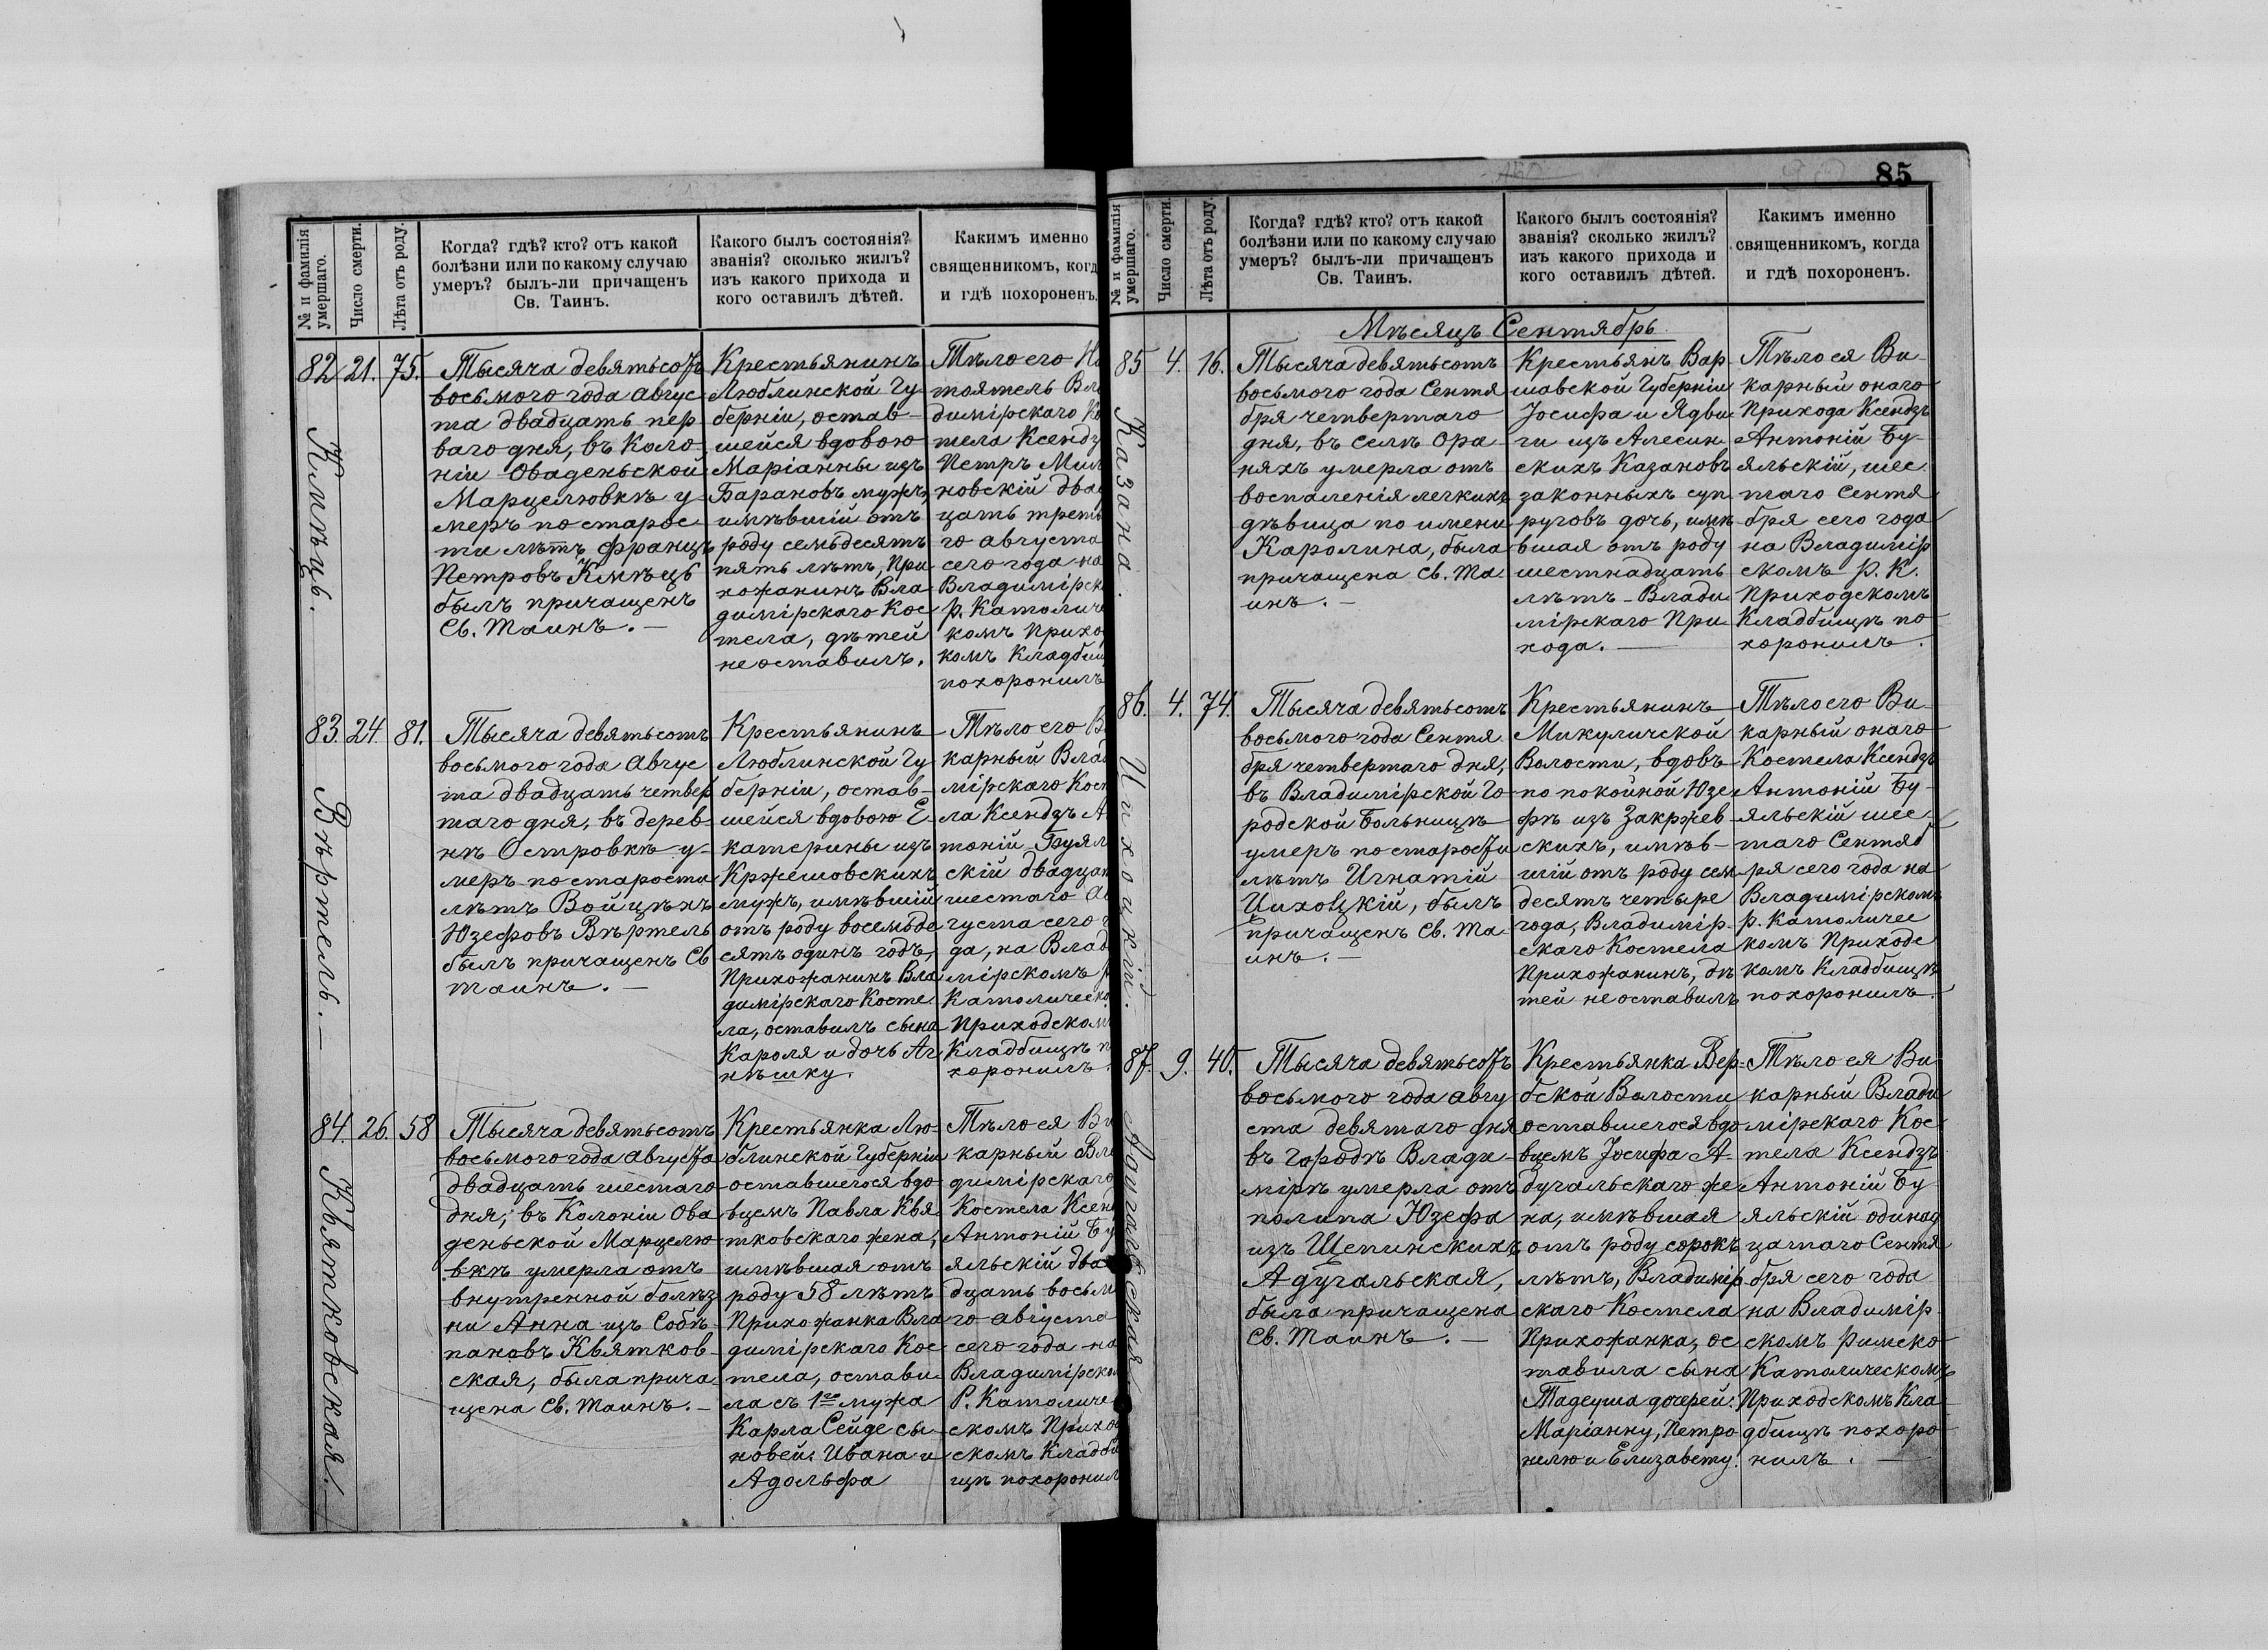 85
№ и фамилія умершаго.
Число смерти.
Лѣта отъ роду.
Когда? гдѣ? кто? отъ какой
болѣзни или по какому случаю
умеръ? былъ-ли причащенъ
Св. Таинъ.
Какого былъ состоянія?
званія? сколько жилъ?
изъ какого прихода и
кого оставилъ дѣтей.
Какимъ именно
священникомъ, когд
и гдѣ похороненъ.
82
Кмѣць.
21.
75.
Тысяча девятьсотъ
восьмого года Авгус
та двадцать пер
ваго дня, въ Коло
ніи Оваденьской
Марцелювкѣ у-
меръ по старос
ти лѣтъ Францъ
Петровъ Кмѣць
былъ причащенъ
Св. Таинъ. —
Крестьянинъ
Люблинской Гу
берніи, остав-
шейся вдовою
Маріанны изъ
Барановъ мужъ,
имѣвшій отъ
роду семьдесятъ
пять лѣтъ, При
хожанинъ Вла
димірскаго Кос
тела, дѣтей
не оставилъ.
Тѣло его На
тоятель Вла
димірскаго Ко
тела Ксендз
Петръ Мил
новскій два
цать треть
го Августа
сего года на
Владимірск
р. Католиче
комъ Прихо
комъ Кладбищ
похоронилъ
83.
Вѣртель. —
24
81.
Тысяча девятьсотъ
восьмого года Авгус
та двадцать четвер
таго дня, въ дерев-
нѣ Островкѣ у-
меръ по старости
лѣтъ Войцѣхъ
Юзефовъ Вѣртель
былъ причащенъ Св
Таинъ. —
Крестьянинъ
Люблинской Гу
берніи, остав-
шейся вдовою Е-
катерины изъ
Кржешовскихъ
мужъ, имѣвшій
отъ роду восемьде
сятъ одинъ годъ,
Прихожанинъ Вла
димірскаго Косте
ла, оставилъ сына
Кароля и дочь Аг
нѣшку.
Тѣло его В
карный Влад
мірскаго Кост
ла Ксендзъ А
тоній Буял
скій двадцат
шестого Ав
густа сего г
да, на Влад
мірскомъ р
Католическо
Приходском
Кладбищѣ п
хоронилъ.
84.
Квятковская. —
26.
58
Тысяча девятьсотъ
восьмого года Августа
двадцать шестаго
дня, въ Колоніи Ова
деньской Марцелю
вкѣ умерла отъ
внутренной болѣз
ни Анна изъ Собѣ-
пановъ Квятков-
ская, была прича-
щена Св. Таинъ. —
Крестьянка Лю-
блинской Губерніи
оставшегося вдо
вцемъ Павла Квя
тковскаго жена,
имѣвшая отъ
роду 58 лѣтъ
Прихожанка Вла
димірскаго Кос
тела, остави
ла съ 1го мужа
Карла Сейде сы-
новей: Ивана и
Адольфа
Тѣло ея Ви
карный Вла
димірскаго
Костела Ксен
Антоній Бу
яльскій два
дцать восьм
го Августа
сего года на
Владимірско
Р. Католиче
скомъ Прихо
скомъ Кладби
щѣ похоронил
№ и фамилія умершаго.
Число смерти.
Лѣта отъ роду.
Когда? гдѣ? кто? отъ какой
болѣзни или по какому случаю
умеръ? былъ-ли причащенъ
Св. Таинъ.
Какого былъ состоянія?
званія? сколько жилъ?
изъ какого прихода и
кого оставилъ дѣтей.
Какимъ именно
священникомъ, когда
и гдѣ похороненъ.
Мѣсяцъ Сентябрь.
85
Казана.
4.
16.
Тысяча девятьсотъ
восьмого года Сентя
бря четвертаго
дня, въ селѣ Ора-
няхъ умерла отъ
воспаленія легкихъ
дѣвица по имени
Каролина, была
причащена Св. Та
инъ. —
Крестьянъ Вар-
шавской Губерніи
Іосифа и Ядви
ги изъ Алесин
скихъ Казановъ
законныхъ суп
руговъ дочь, имѣ
вшая отъ роду
шестнадцать
лѣтъ - Влади
мірскаго При
хода. —
Тѣло ея Ви-
карный онаго
Прихода Ксендзъ
Антоній Бу-
яльскій, шес
таго Сентя
бря сего года
на Владимір
скомъ Р. К.
Приходскомъ
Кладбищѣ по
хоронилъ.
86.
Цихоцкій.
4.
74.
Тысяча девятьсотъ
восьмого года Сентя
бря четвертаго дня,
въ Владимірской Го
родской Больницѣ
умеръ по старости
лѣтъ Игнатій
Цихоцкій, былъ
причащенъ Св. Та-
инъ. —
Крестьянинъ
Микуличской
Волости, вдовъ
по покойной Юзе
фѣ изъ Закржев
скихъ, имѣв-
шій отъ роду сем
десятъ четыре
года, Владимір-
скаго Костела
Прихожанинъ, дѣ
тей не оставилъ
Тѣло его Ви
карный онаго
Костела Ксендзъ
Антоній Бу-
яльскій шес
таго Сентяб
ря сего года на
Владимірскомъ
р. Католичес
комъ Приходс
комъ Кладбищѣ
похоронилъ.
87.
Адугальская
9.
40.
Тысяча девятьсотъ
восьмого года Авгу
ста девятаго дня
въ Городѣ Влади-
мірѣ умерла отъ
полипа Юзефа
изъ Щепинскихъ
Адугальская,
была причащена
Св. Таинъ. —
Крестьянка Вер-
бской Волости
оставшегося вдо
вцемъ Іосифа А-
дугальскаго же
на, имѣвшая
отъ роду сорокъ
лѣтъ, Владимір
скаго Костела
Прихожанка, ос
тавила сына
Тадеуша дочерей:
Маріанну, Петро
нелю и Елизавету.
Тѣло ея Ви
карный Влади
мірскаго Кос
тела Ксендзъ
Антоній Бу
яльскій одинад
цатаго Сентя
бря сего года
на Владимір
скомъ Римско
Католическомъ
Приходскомъ Кла
дбищѣ похоро
нилъ. —